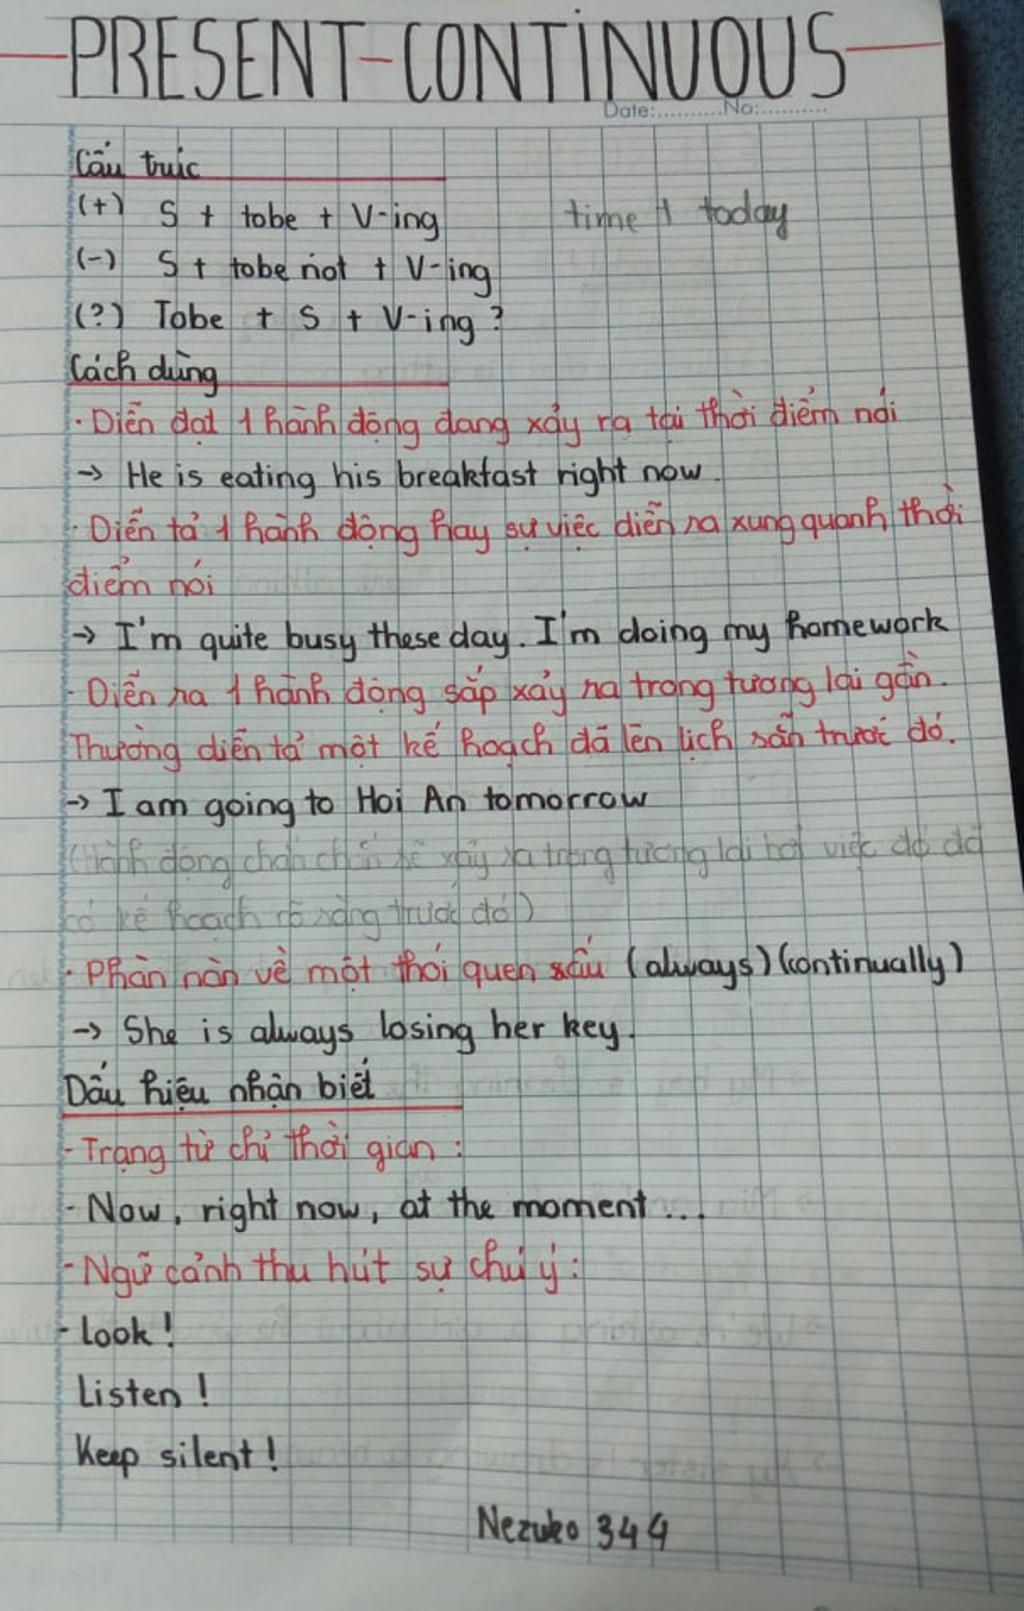 PRESENT-CONTINUOUS
Date:...........No:...........
Cấu trúc
(+) S + tobe + V-ing time + today
(-) S + tobe not + V-ing
(?) Tobe + S + V-ing ?
Cách dùng
· Diễn đạt 1 hành động đang xảy ra tại thời điểm nói
→ He is eating his breakfast right now.
· Diễn tả 1 hành động hay sự việc diễn ra xung quanh thời
điểm nói
→ I'm quite busy these day. I'm doing my homework
· Diễn ra 1 hành động sắp xảy ra trong tương lai gần.
Thường diễn tả một kế hoạch đã lên lịch sẵn trước đó.
→ I am going to Hoi An tomorrow
(Hành động chắn chắn sẽ xảy ra trong tương lai bởi việc đó đã
có kế hoạch rõ ràng trước đó)
· Phàn nàn về một thói quen xấu (always) (continually)
→ She is always losing her key.
Dấu hiệu nhận biết
- Trạng từ chỉ thời gian :
- Now, right now, at the moment...
- Ngữ cảnh thu hút sự chú ý :
- Look !
Listen !
Keep silent !
Nezuko 344